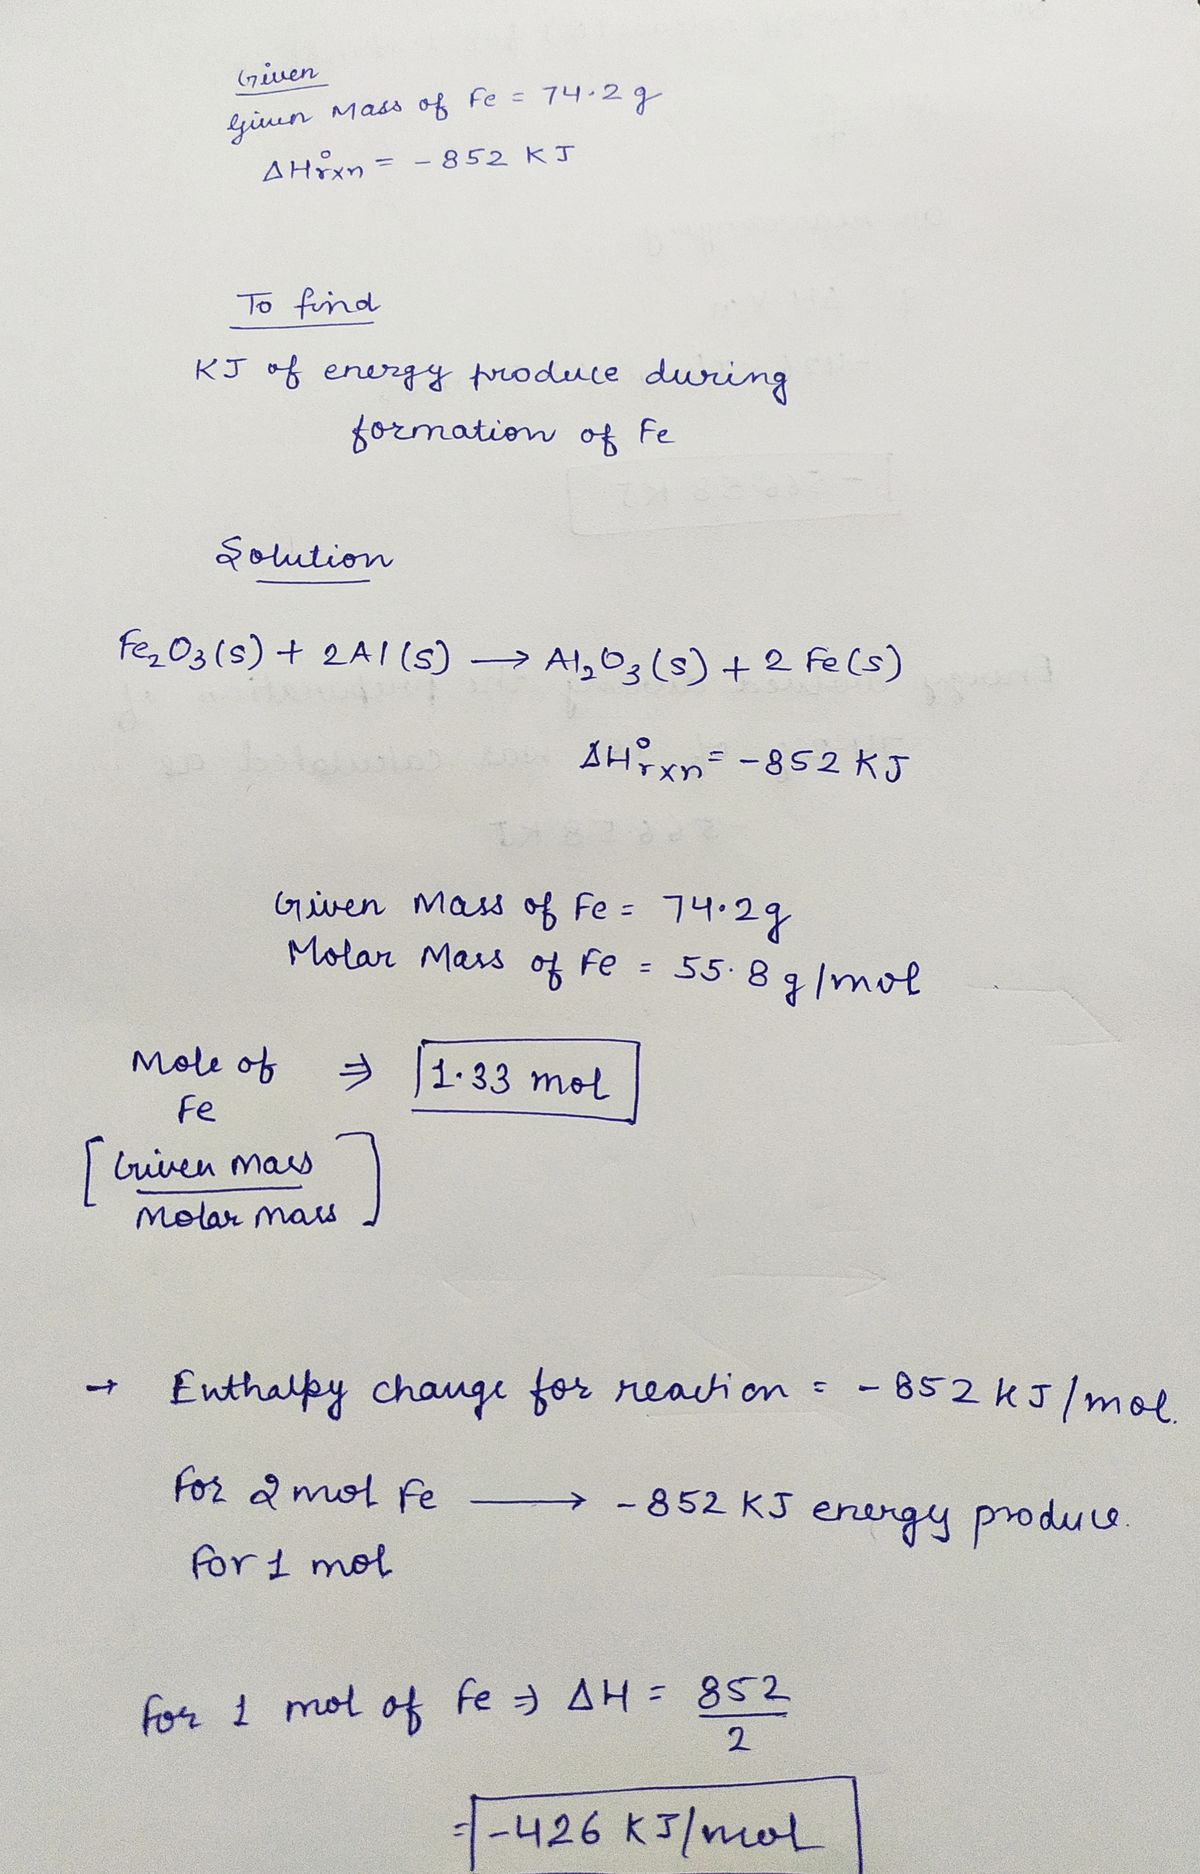 Given
Given Mass of Fe = 74.2 g
ΔH°rxn = -852 KJ
To find
KJ of energy produce during
formation of Fe
Solution
Fe₂O₃(s) + 2Al(s) → Al₂O₃(s) + 2Fe(s)
ΔH°rxn = -852 KJ
Given Mass of Fe = 74.2g
Molar Mass of Fe = 55.8 g/mol
Mole of ⇒ 1.33 mol
Fe
[Given mass
Molar mass]
→ Enthalpy change for reaction = -852 KJ/mol.
For 2 mol Fe → -852 KJ energy produce.
For 1 mol
For 1 mol of Fe ⇒ ΔH = 852
2
= -426 KJ/mol